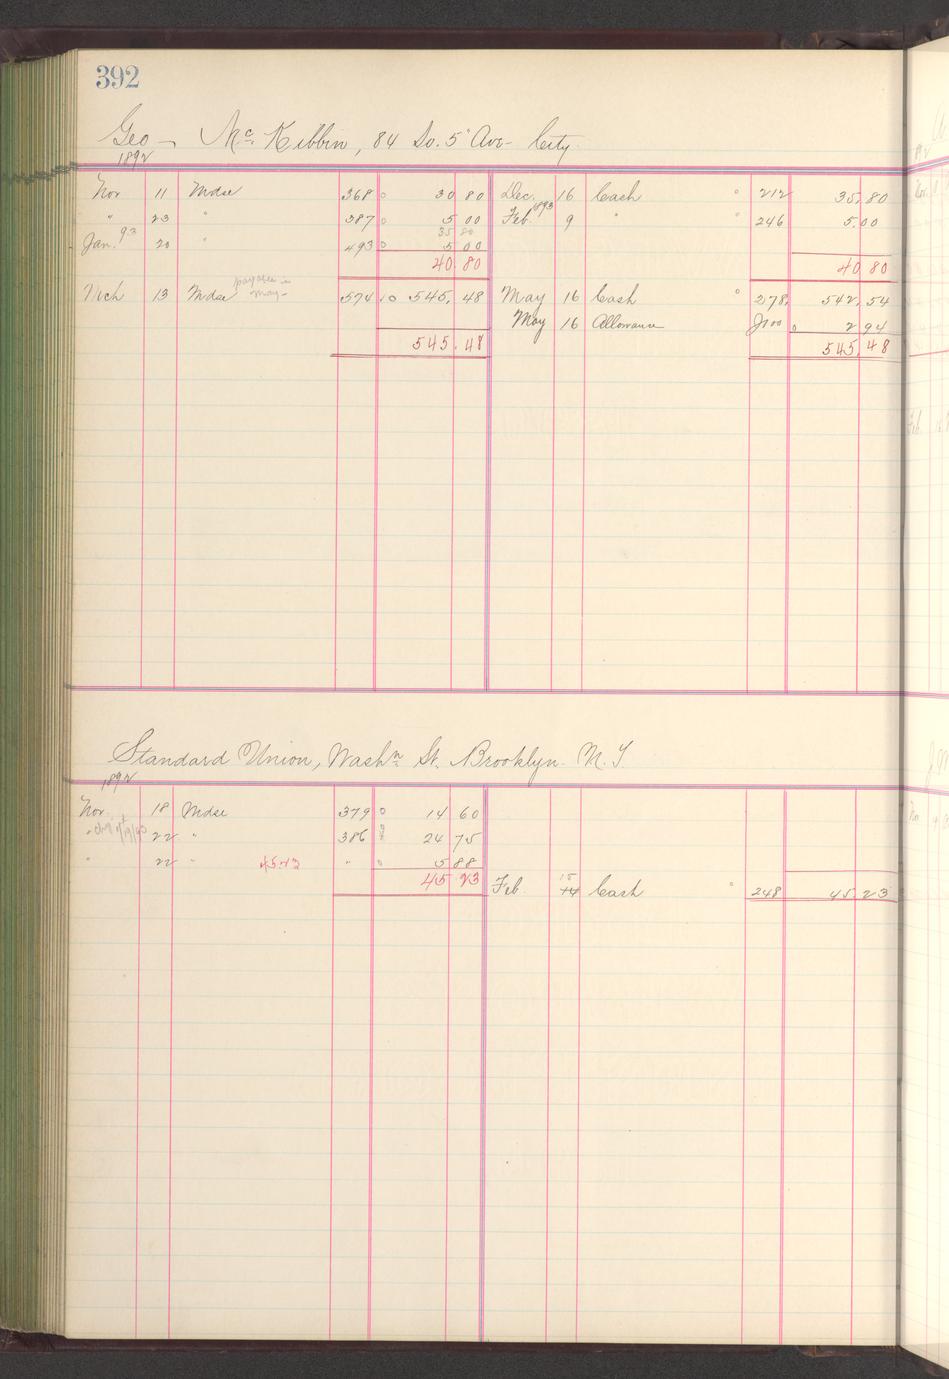 392
Geo — Mc Kibbin, 84 So. 5" Ave- City
1892
Nov 11 Mdse 368 30 80 Dec 16 Cash 212 35.80
" 23 " 387 5 00 Feb. 1893 9 " 246 5.00
35 80
Jan. 93 20 " 493 5 00
40.80 40 80
Mch 13 Mdse payable in May- 574 545.48 May 16 Cash 278 542.54
May 16 Allowance 2 94
545.48 545.48
Standard Union, Washn St. Brooklyn. N. Y
1892
Nov. 18 Mdse 379 14 60
" 22 " 386 24 75
" 22 " 45.23 " 5 88
45 23
Feb. 15 14 Cash 248 45.23